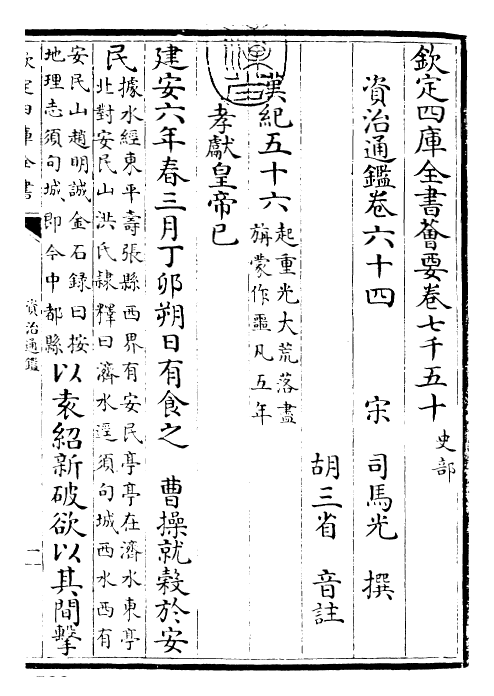 欽定四庫全書薈要卷七千五十 史部
資治通鑑卷六十四
宋 司馬光 撰
胡三省 音註
漢紀五十六 起重光大荒落盡
旃蒙作噩凡五年
孝獻皇帝已
建安六年春三月丁卯朔日有食之 曹操就穀於安
民 據水經東平壽張縣西界有安民亭亭在濟水東亭
北對安民山洪氏隸釋曰濟水逕須句城西水西有
安民山趙明誠金石錄曰按
地理志須句城即今中都縣 以袁紹新破欲以其間擊
欽定四庫全書
資治通鑑
一